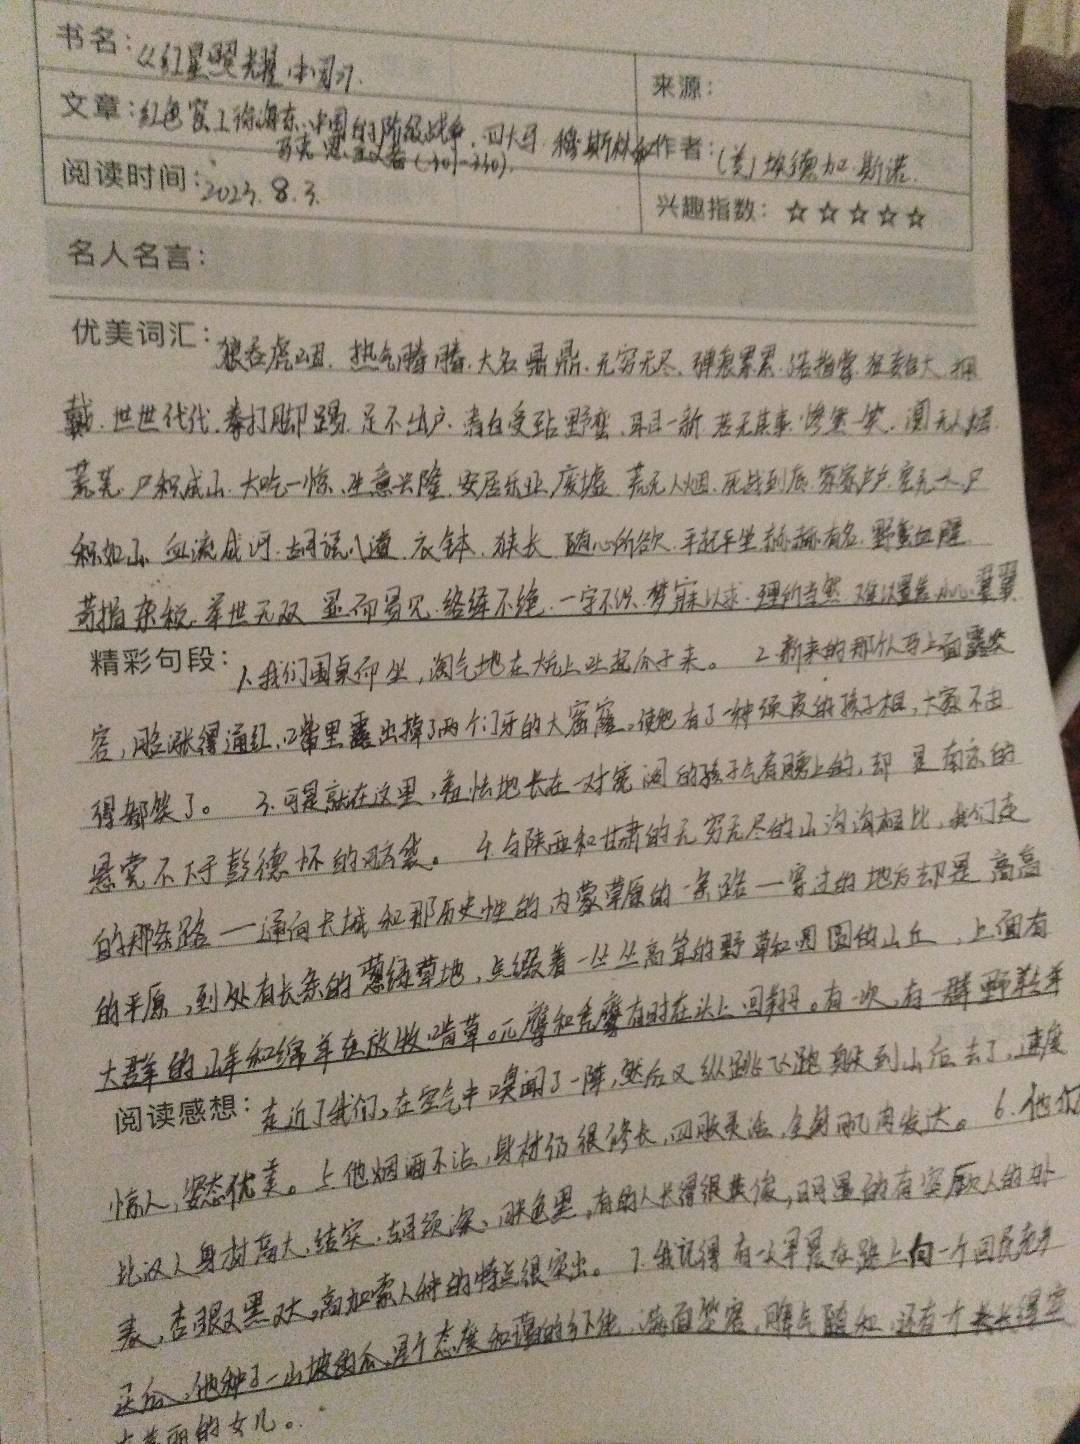 书名：《红星照耀中国》
来源：
文章：红色窑工徐海东、中国的阶级战争、四大马、穆斯林和
马克思主义者(301-330)
作者：(美)埃德加·斯诺
阅读时间：2023.8.3.
兴趣指数：☆☆☆☆☆
名人名言：
优美词汇：狼吞虎咽、热气腾腾、大名鼎鼎、无穷无尽、弹痕累累、了指掌、狂妄自大、拥
戴、世世代代、拳打脚踢、足不出户、野蛮、耳目一新、若无其事、惨笑、阒无人烟、
荒芜、尸积成山、大吃一惊、生意兴隆、安居乐业、废墟、荒无人烟、死战到底、家家户户、空无一人、尸
积如山、血流成河、胡说八道、衣钵、狭长、随心所欲、平起平坐、赫赫有名、野蛮血腥、
苛捐杂税、举世无双、显而易见、络绎不绝、一字不识、梦寐以求、理所当然、难以置信、小心翼翼
精彩句段：1.我们围桌而坐，淘气地在大炕上吐起瓜子来。 2.新来的那个人马上面露笑
容，脸涨得通红，嘴里露出掉了两个门牙的大窟窿，使他有了一种顽皮的孩子相，大家不由
得都笑了。 3.可是就在这里，羞怯地长在一对宽阔的孩子气肩膀上的，却是南京的
悬赏不下于彭德怀的脑袋。 4.与陕西和甘肃的无穷无尽的山沟沟相比，我们走
的那条路——通向长城和那历史性的内蒙草原的一条路——穿过的地方却是高高
的平原，到处有长条的葱绿草地，点缀着一丛丛高耸的野草和圆圆的山丘，上面有
大群的山羊和绵羊在放牧啃草。兀鹰和秃鹰有时在头上回翔。有一次，有一群野羚羊
阅读感想：走近了我们，在空气中嗅闻了一阵，然后又纵跳飞跑躲到山后去了，速度
惊人，姿态优美。 5.他烟酒不沾，身材仍很修长，四肢灵活，全身肌肉发达。 6.他们
比汉人身材高大，结实，胡须深，肤色黑，有的人长得很英俊，明显的有突厥人的外
表，杏眼又黑又大，高加索人种的特点很突出。 7.我记得有一天早晨在路上向一个回民老乡
买瓜，他种了一山坡的瓜，是个态度和蔼的乡下佬，满面笑容，脾气随和，还有个长得实
在美丽的女儿。